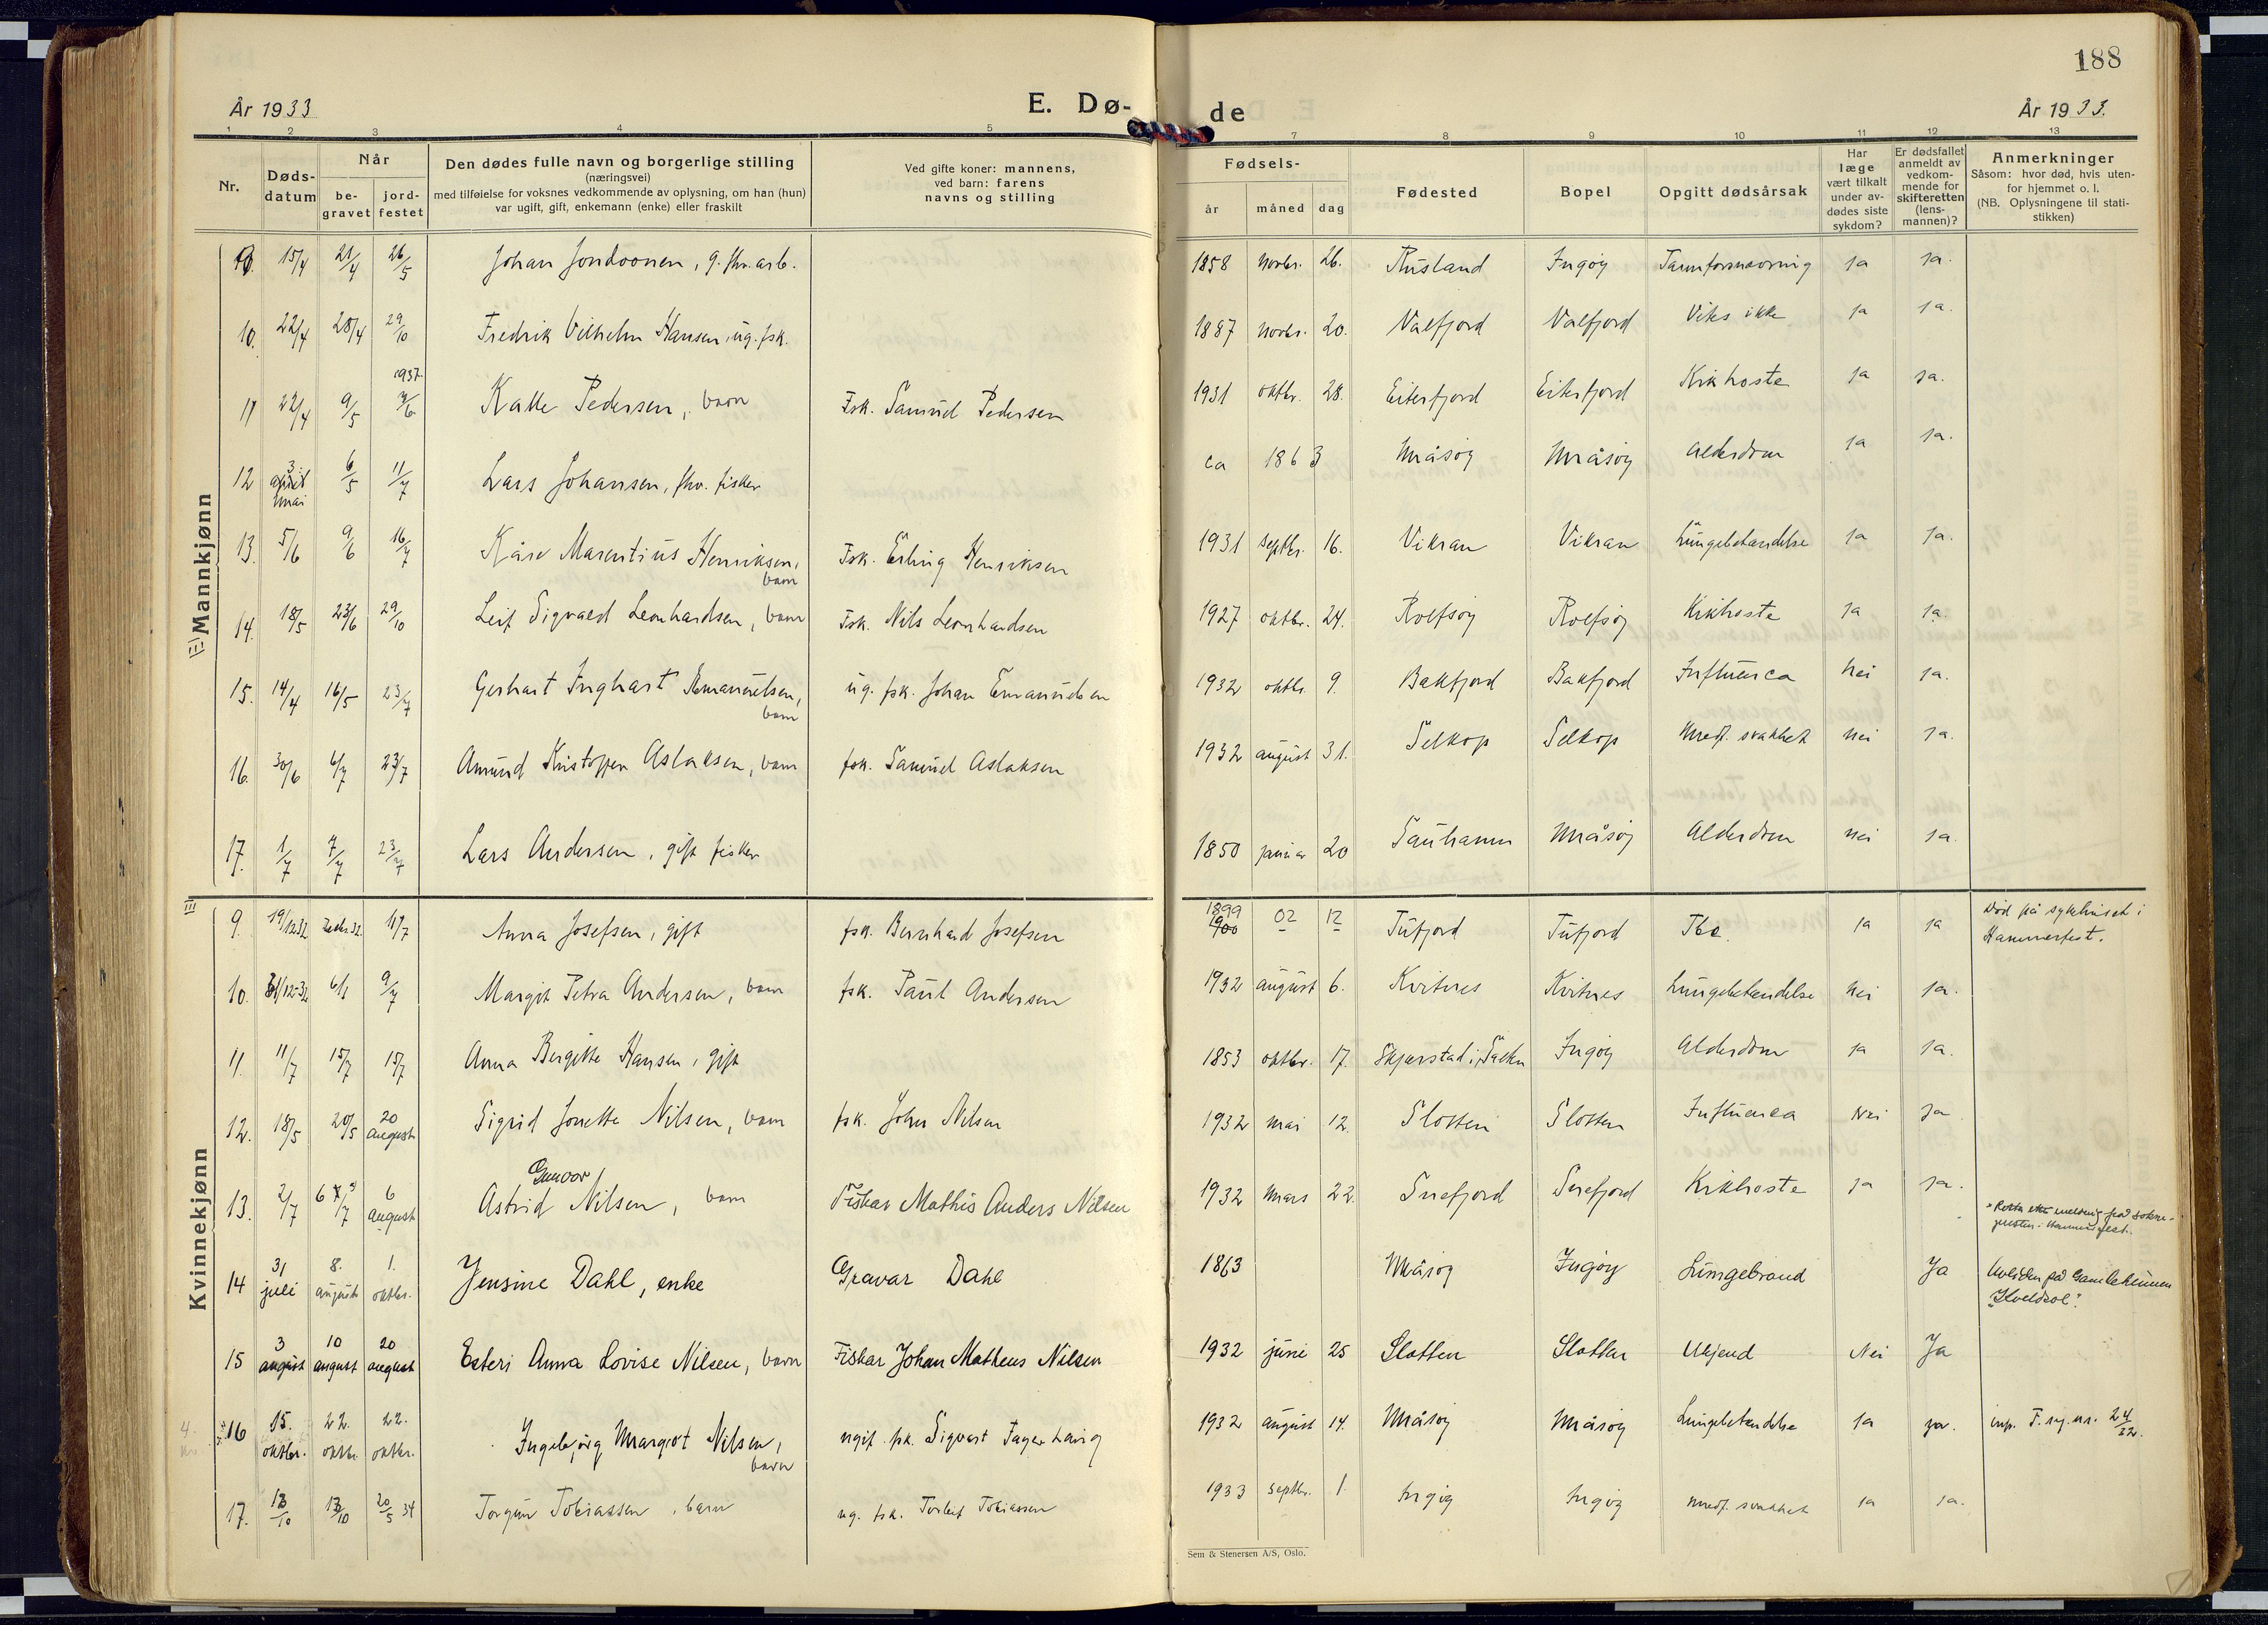 188
År 1933
E. Dø-
de
År 1933.
1 2 3 4 5 7 8 9 10 11 12 13
Nr.
Døds-
datum
Når
be-
gravet
jord-
festet
Den dødes fulle navn og borgerlige stilling
(næringsvei)
med tilføielse for voksnes vedkommende av oplysning, om han (hun)
var ugift, gift, enkemann (enke) eller fraskilt
Ved gifte koner: mannens,
ved barn: farens
navns og stilling
Fødsels-
år måned dag
Fødested
Bopel
Opgitt dødsårsak
Har
læge
vært tilkalt
under av-
dødes siste
sykdom?
Er dødsfallet
anmeldt av
vedkom-
mende for
skifteretten
(lens-
mannen)?
Anmerkninger
Såsom: hvor død, hvis uten-
for hjemmet o. l.
(NB. Oplysningene til stati-
stikken)
Mannkjønn
15/4 21/4 26/5 Johan , g. fhv. arb. 1858 novbr. 26. Rusland Ingøy ja ja.
10. 22/4 28/4 29/10 Fredrik Vilhelm Hansen, ug. fsk. 1887 novbr. 20. Valfjord Valfjord Vites ikke ja ja.
1937
11 22/4 9/5 3/6 Kalle Pedersen, barn Fsk. Samuel Pedersen 1931 oktbr. 28. Eiterfjord Eiterfjord Kikhoste ja ja.
12 3 april mai 6/5 11/7 Lars Johansen, fhv. fisker ca 1863 Måsøy Måsøy Alderdom ja ja.
13. 5/6 9/6 16/7 Kåre Marentius Henriksen, barn Fsk. Erling Henriksen 1931 septbr. 16. Vikran Vikran Lungebetendelse ja ja.
14. 18/5 23/6 29/10 Leif Sigvald Leonhardsen, barn Fsk. Nils Leonhardsen 1927 oktbr. 24. Rolfsøy Rolfsøy Kikhoste ja ja.
15. 14/4 16/5 23/7 Gerhart Inghart Emanuelsen, barn ug. fsk. Johan Emanuelsen 1932 oktbr. 9. Bakfjord Bakfjord Influensa nei ja.
16. 30/6 6/7 23/7 Amund Kristoffer Aslaksen, barn fsk. Samuel Aslaksen 1932 august 31. Selkop Selkop Medf. svakhet nei ja.
17. 1/7 7/7 23/7 Lars Andersen, gift fisker 1850 januar 20 Sauhamn Måsøy Alderdom nei ja.
III
Kvinnekjønn
9. 19/12 32 32 11/7 Anna Josefsen, gift fsk. Bernhard Josefsen 1899 1900 02 12 Tufjord Tufjord Tbc. ja ja Død på sykehuset i
Hammerfest.
10. 31/12-32 6/1 9/7 Margit Petra Andersen, barn fsk. Paul Andersen 1932 august 6. Kvitnes Kvitnes Lungebetendelse nei ja.
11. 11/7 15/7 15/7 Anna Bergitte Hansen, gift 1853 oktbr. 17. Skjerstad i Salten Ingøy Alderdom ja ja.
12. 18/5 20/5 20 august Sigrid Jonette Nilsen, barn fsk. John Nilsen 1932 mai 12. Slotten Slotten Influensa Nei ja
13. 2/7 6/7 6 august Astrid Gunvor Nilsen, barn Fiskar Mathis Anders Nilsen 1932 mars 22. Snefjord Snefjord Kikhoste ja ja.
melding frå sokne-
presten i Hammerfest.
14 31 juli 8. august 1. oktbr. Jensine Dahl, enke Gravar Dahl 1863 Måsøy Ingøy Lungebrand Ja på Gamleheimen
"Kveldsol".
15 3 august 10 august 20 august Esteri Anna Lovise Nilsen, barn Fiskar Johan Matheus Nilsen 1932 juni 25 Slotten Slotten Ukjend Nei Ja
16 15. oktbr. 22. oktbr. 22. oktbr. Ingebjørg Margot Nilsen, barn ugift fsk. Sigvart Fagerhaug 1932 august 14. Måsøy Måsøy Lungebetendelse ja ja. inp. F. rg. nr. 24/32.
17. 13/10 13/10 20/5 34 Torgun Tobiassen, barn ug. fsk. Torleif Tobiassen 1933 septbr. 1. Ingøy Ingøy medf. svakhet ja ja.
Sem & Stenersen A/S, Oslo.